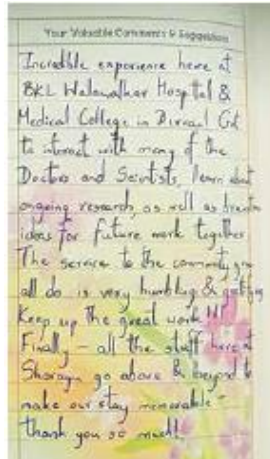 Your Valuable Comments & Suggestion
Incredible experience here at
BKL Walawalkar Hospital &
Medical College in
to interact with many of the
Doctors and Scientists, learn about
ongoing research, as well as
ideas for future work together
The service to the community you
all do is very humbling &
Keep up the great work!!
Finally - all the staff here at
go above & beyond to
make our stay memorable -
thank you so much!